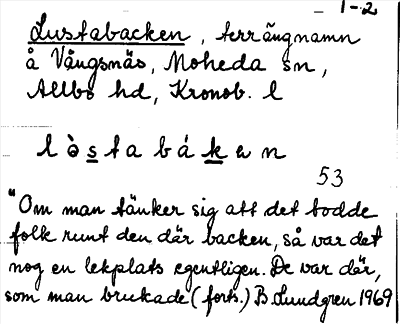 1-2
Lustabacken, terrängnamn
å Vångsnäs, Moheda sn,
Allbo hd, Kronob. l
l ò s t a b á k e n
53
"Om man tänker sig att det bodde
folk runt den där backen, så var det
nog en lekplats egentligen. De var där,
som man brukade (forts.) B Lundgren 1969